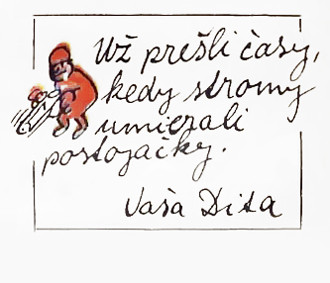 Už prešli časy,
kedy stromy
umierali
postojačky.
Vaša Dita